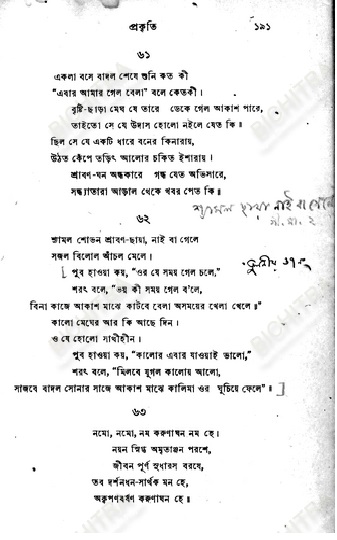 প্রকৃতি ১৯১
৬১
একলা বসে বাদল শেষে শুনি কত কী
"এবার আমার গেল বেলা" বলে কেতকী।
বৃষ্টি-ছাড়া মেঘ যে তারে ডেকে গেল আকাশ পারে,
তাইতো সে যে উদাস হোলো নইলে যেত কি॥
ছিল সে যে একটি ধারে বনের কিনারায়,
উঠত কেঁপে তড়িৎ আলোর চকিত ইশারায়।
শ্রাবণ-ঘন অন্ধকারে গন্ধ যেত অভিসারে,
সন্ধ্যাতারা আড়াল থেকে খবর পেত কি॥
শ্যামল ছায়া নাই বা গেলে
৬২
শ্যামল শোভন শ্রাবণ-ছায়া, নাই বা গেলে
সজল বিলোল আঁচল মেলে।
[পুব হাওয়া কয়, "ওর যে সময় গেল চলে,"
শরৎ বলে, "ভয় কী সময় গেল ব'লে,
বিনা কাজে আকাশ মাঝে কাটবে বেলা অসময়ের খেলা খেলে॥"
কালো মেঘের আর কি আছে দিন।
ও যে হোলো সাথীহীন।
পুব হাওয়া কয়, "কালোর এবার যাওয়াই ভালো,"
শরৎ বলে, "মিলবে যুগল কালোয় আলো,
সাজবে বাদল সোনার সাজে আকাশ মাঝে কালিমা ওর ঘুচিয়ে ফেলে"॥]
৬৩
নমো, নমো, নম করুণাঘন নম হে।
নয়ন স্নিগ্ধ অমৃতাঞ্জন পরশে,
জীবন পূর্ণ সুধারস বরষে,
তব দর্শনধন-সার্থক মন হে,
অকৃপণবর্ষণ করুণাঘন হে॥
BICHITRA